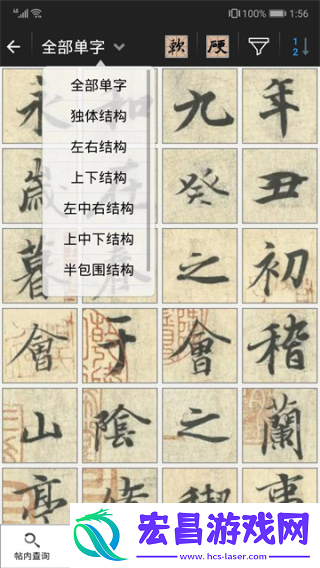 100% 1:56
全部单字 軟 硬 1 2
全部单字
独体结构
左右结构
上下结构
左中右结构
上中下结构
半包围结构
永 和 九 年
歲 在 癸 丑
暮 春 之 初
會 于 會 稽
山 陰 之 蘭
亭 脩 稧 事
帖内查询
宏昌游戏网
www.hcs-laser.com